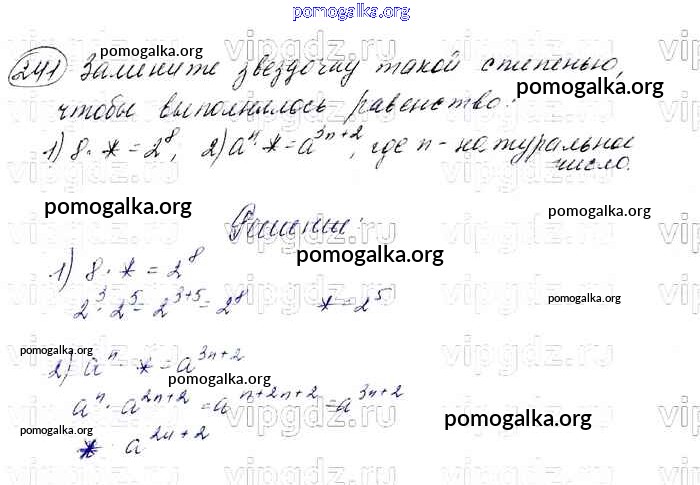 pomogalka.org
241 Замените звездочку такой степенью,
чтобы выполнялось равенство:
1) 8 · * = 2^8, 2) a^n · * = a^{3n+2}, где n - натуральное
число.
Решение:
1) 8 · * = 2^8
2^3 · 2^5 = 2^{3+5} = 2^8 * = 2^5
2) a^n · * = a^{3n+2}
a^n · a^{2n+2} = a^{n+2n+2} = a^{3n+2}
* a^{2n+2}
pomogalka.org
pomogalka.org
pomogalka.org
pomogalka.org
pomogalka.org
pomogalka.org
pomogalka.org
pomogalka.org
pomogalka.org
pomogalka.org
pomogalka.org
vipgdz.ru